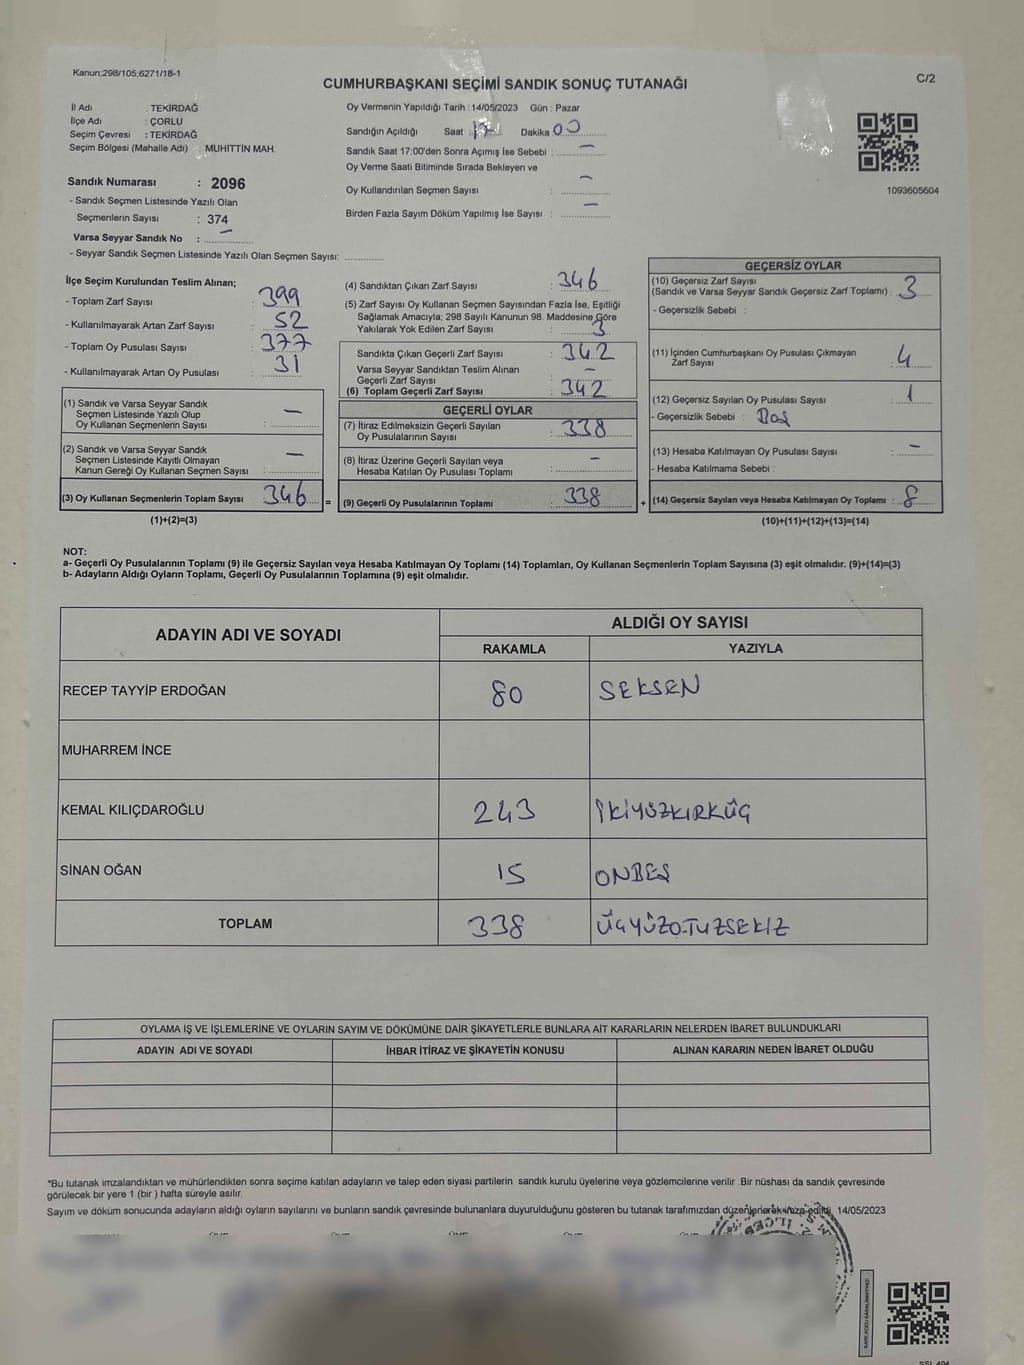 Kanun;298/105,6271/18-1
C/2
CUMHURBAŞKANI SEÇİMİ SANDIK SONUÇ TUTANAĞI
İl Adı : TEKİRDAĞ
İlçe Adı : ÇORLU
Seçim Çevresi : TEKİRDAĞ
Seçim Bölgesi (Mahalle Adı) : MUHİTTİN MAH.
Sandık Numarası : 2096
- Sandık Seçmen Listesinde Yazılı Olan
Seçmenlerin Sayısı : 374
Varsa Seyyar Sandık No : -
- Seyyar Sandık Seçmen Listesinde Yazılı Olan Seçmen Sayısı:
Oy Vermenin Yapıldığı Tarih :14/05/2023 Gün : Pazar
Sandığın Açıldığı Saat : 17 Dakika 00
Sandık Saat 17:00'den Sonra Açımış İse Sebebi : -
Oy Verme Saati Bitiminde Sırada Bekleyen ve
Oy Kullandırılan Seçmen Sayısı : -
Birden Fazla Sayım Döküm Yapılmış İse Sayısı : -
1093605604
İlçe Seçim Kurulundan Teslim Alınan;
- Toplam Zarf Sayısı : 399
- Kullanılmayarak Artan Zarf Sayısı : 52
- Toplam Oy Pusulası Sayısı : 377
- Kullanılmayarak Artan Oy Pusulası : 31
(1) Sandık ve Varsa Seyyar Sandık
Seçmen Listesinde Yazılı Olup
Oy Kullanan Seçmenlerin Sayısı : -
(2) Sandık ve Varsa Seyyar Sandık
Seçmen Listesinde Kayıtlı Olmayan
Kanun Gereği Oy Kullanan Seçmen Sayısı : -
(3) Oy Kullanan Seçmenlerin Toplam Sayısı : 346 =
(1)+(2)=(3)
(4) Sandıktan Çıkan Zarf Sayısı : 346
(5) Zarf Sayısı Oy Kullanan Seçmen Sayısından Fazla İse, Eşitliği
Sağlamak Amacıyla; 298 Sayılı Kanunun 98. Maddesine Göre
Yakılarak Yok Edilen Zarf Sayısı : 3
Sandıkta Çıkan Geçerli Zarf Sayısı : 342
Varsa Seyyar Sandıktan Teslim Alınan
Geçerli Zarf Sayısı : -
(6) Toplam Geçerli Zarf Sayısı : 342
GEÇERLİ OYLAR
(7) İtiraz Edilmeksizin Geçerli Sayılan
Oy Pusulalarının Sayısı : 338
(8) İtiraz Üzerine Geçerli Sayılan veya
Hesaba Katılan Oy Pusulası Toplamı : -
(9) Geçerli Oy Pusulalarının Toplamı : 338 +
GEÇERSİZ OYLAR
(10) Geçersiz Zarf Sayısı
(Sandık ve Varsa Seyyar Sandık Geçersiz Zarf Toplamı) : 3
- Geçersizlik Sebebi :
(11) İçinden Cumhurbaşkanı Oy Pusulası Çıkmayan
Zarf Sayısı : 4
(12) Geçersiz Sayılan Oy Pusulası Sayısı : 1
- Geçersizlik Sebebi : Boş
(13) Hesaba Katılmayan Oy Pusulası Sayısı : -
- Hesaba Katılmama Sebebi :
(14) Geçersiz Sayılan veya Hesaba Katılmayan Oy Toplamı : 8
(10)+(11)+(12)+(13)=(14)
NOT:
a- Geçerli Oy Pusulalarının Toplamı (9) ile Geçersiz Sayılan veya Hesaba Katılmayan Oy Toplamı (14) Toplamları, Oy Kullanan Seçmenlerin Toplam Sayısına (3) eşit olmalıdır. (9)+(14)=(3)
b- Adayların Aldığı Oyların Toplamı, Geçerli Oy Pusulalarının Toplamına (9) eşit olmalıdır.
ADAYIN ADI VE SOYADI
ALDIĞI OY SAYISI
RAKAMLA YAZIYLA
RECEP TAYYİP ERDOĞAN 80 SEKSEN
MUHARREM İNCE
KEMAL KILIÇDAROĞLU 243 İKİYÜZKIRKÜÇ
SİNAN OĞAN 15 ONBEŞ
TOPLAM 338 ÜÇYÜZOTUZSEKİZ
OYLAMA İŞ VE İŞLEMLERİNE VE OYLARIN SAYIM VE DÖKÜMÜNE DAİR ŞİKAYETLERLE BUNLARA AİT KARARLARIN NELERDEN İBARET BULUNDUKLARI
ADAYIN ADI VE SOYADI İHBAR İTİRAZ VE ŞİKAYETİN KONUSU ALINAN KARARIN NEDEN İBARET OLDUĞU
*Bu tutanak imzalandıktan ve mühürlendikten sonra seçime katılan adayların ve talep eden siyasi partilerin sandık kurulu üyelerine veya gözlemcilerine verilir .Bir nüshası da sandık çevresinde
görülecek bir yere 1 (bir ) hafta süreyle asılır.
Sayım ve döküm sonucunda adayların aldığı oyların sayılarını ve bunların sandık çevresinde bulunanlara duyurulduğunu gösteren bu tutanak tarafımızdan düzenlenerek imza edildi. 14/05/2023